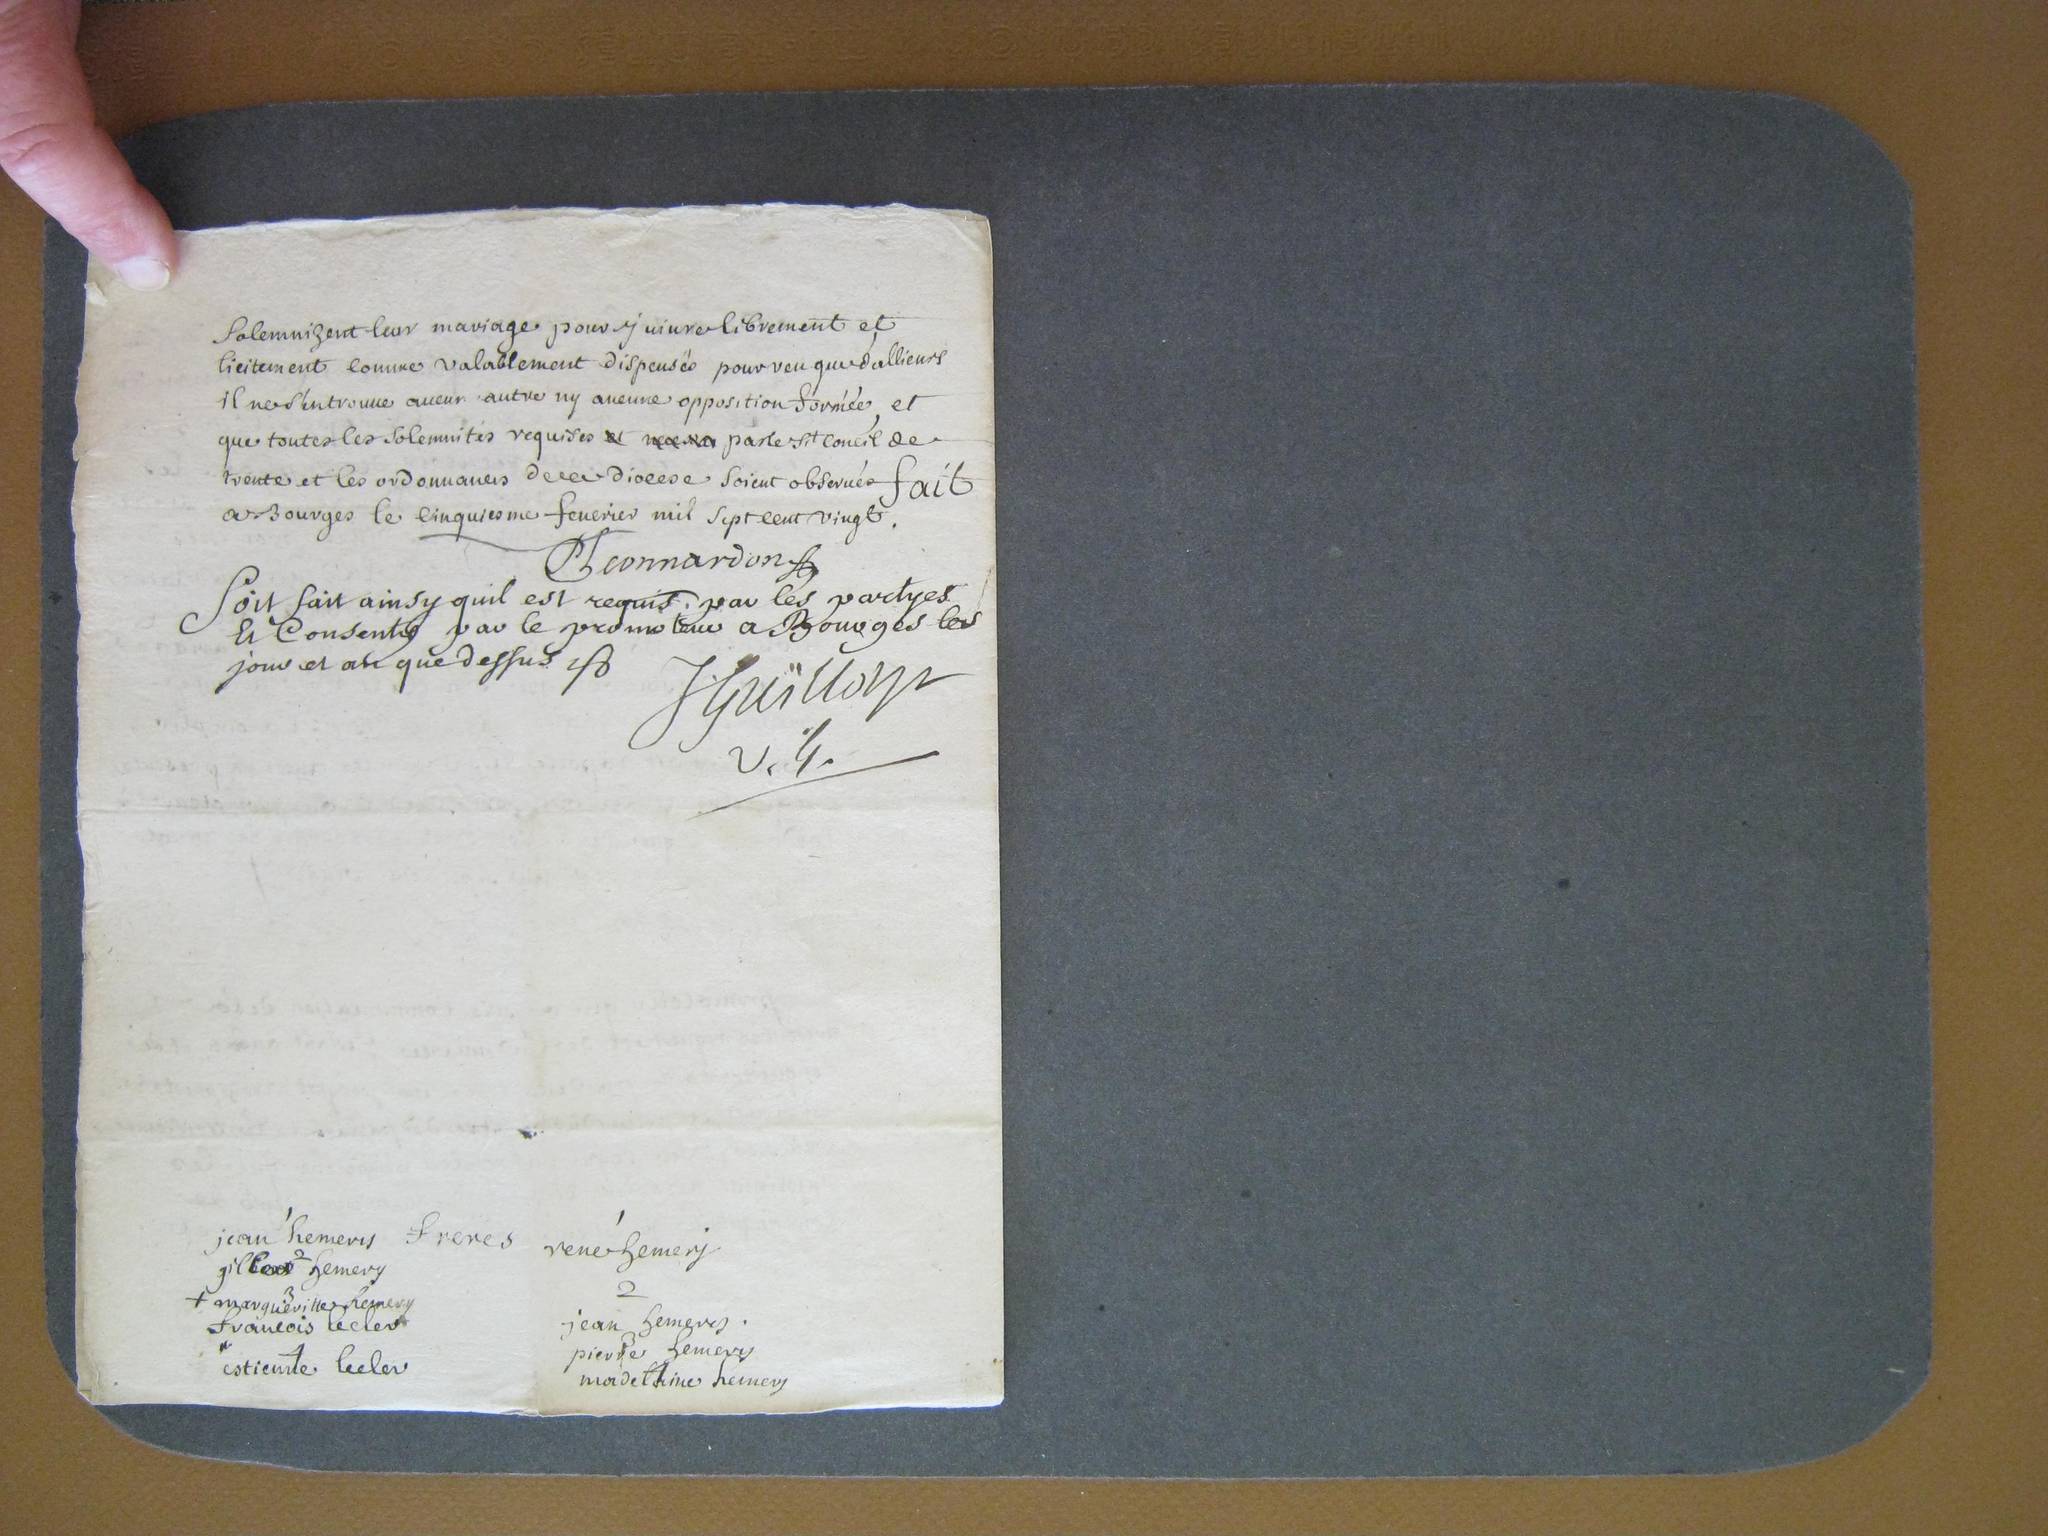 Solemnizent leur mariage pour y uiure librement et
licitement comme valablement dispensés pourveu que dallieurs
il ne s'entrouue aucun autre ny aucune opposition formée, et
que toutes les solemnités requises par le St Concil de
trente et les ordonnances de ce diocese soient obserués fait
a Bourges le cinquiesme feuerier mil sept cent vingt.
Soit fait ainsy quil est requis par les partyes
Et Consenty par le promoteur a Bourges les
jour et an que dessus
v. g.
jean 1 hemery freres
gilbert 2 hemery
+ margueritte 3 hemery
francois lecler
estienne 4 lecler
rené 1 hemery
2
jean hemery.
pierre 3 hemery
madelaine 4 hemery